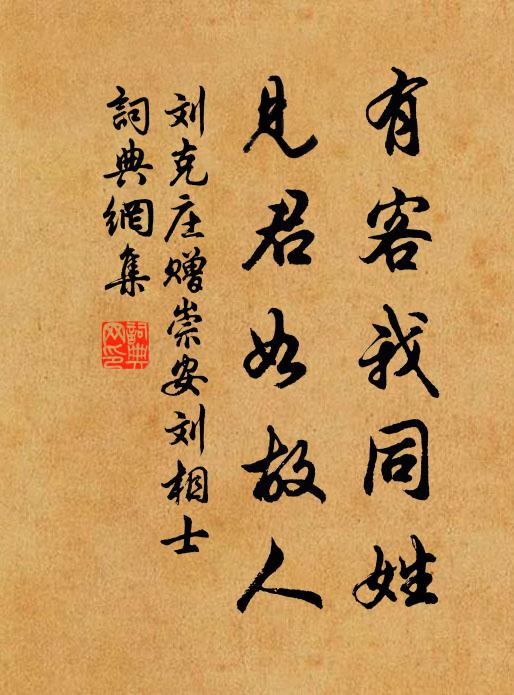 有客我同姓
見君如故人
刘克庄赠崇安刘相士
詞典網集
詞典
网印